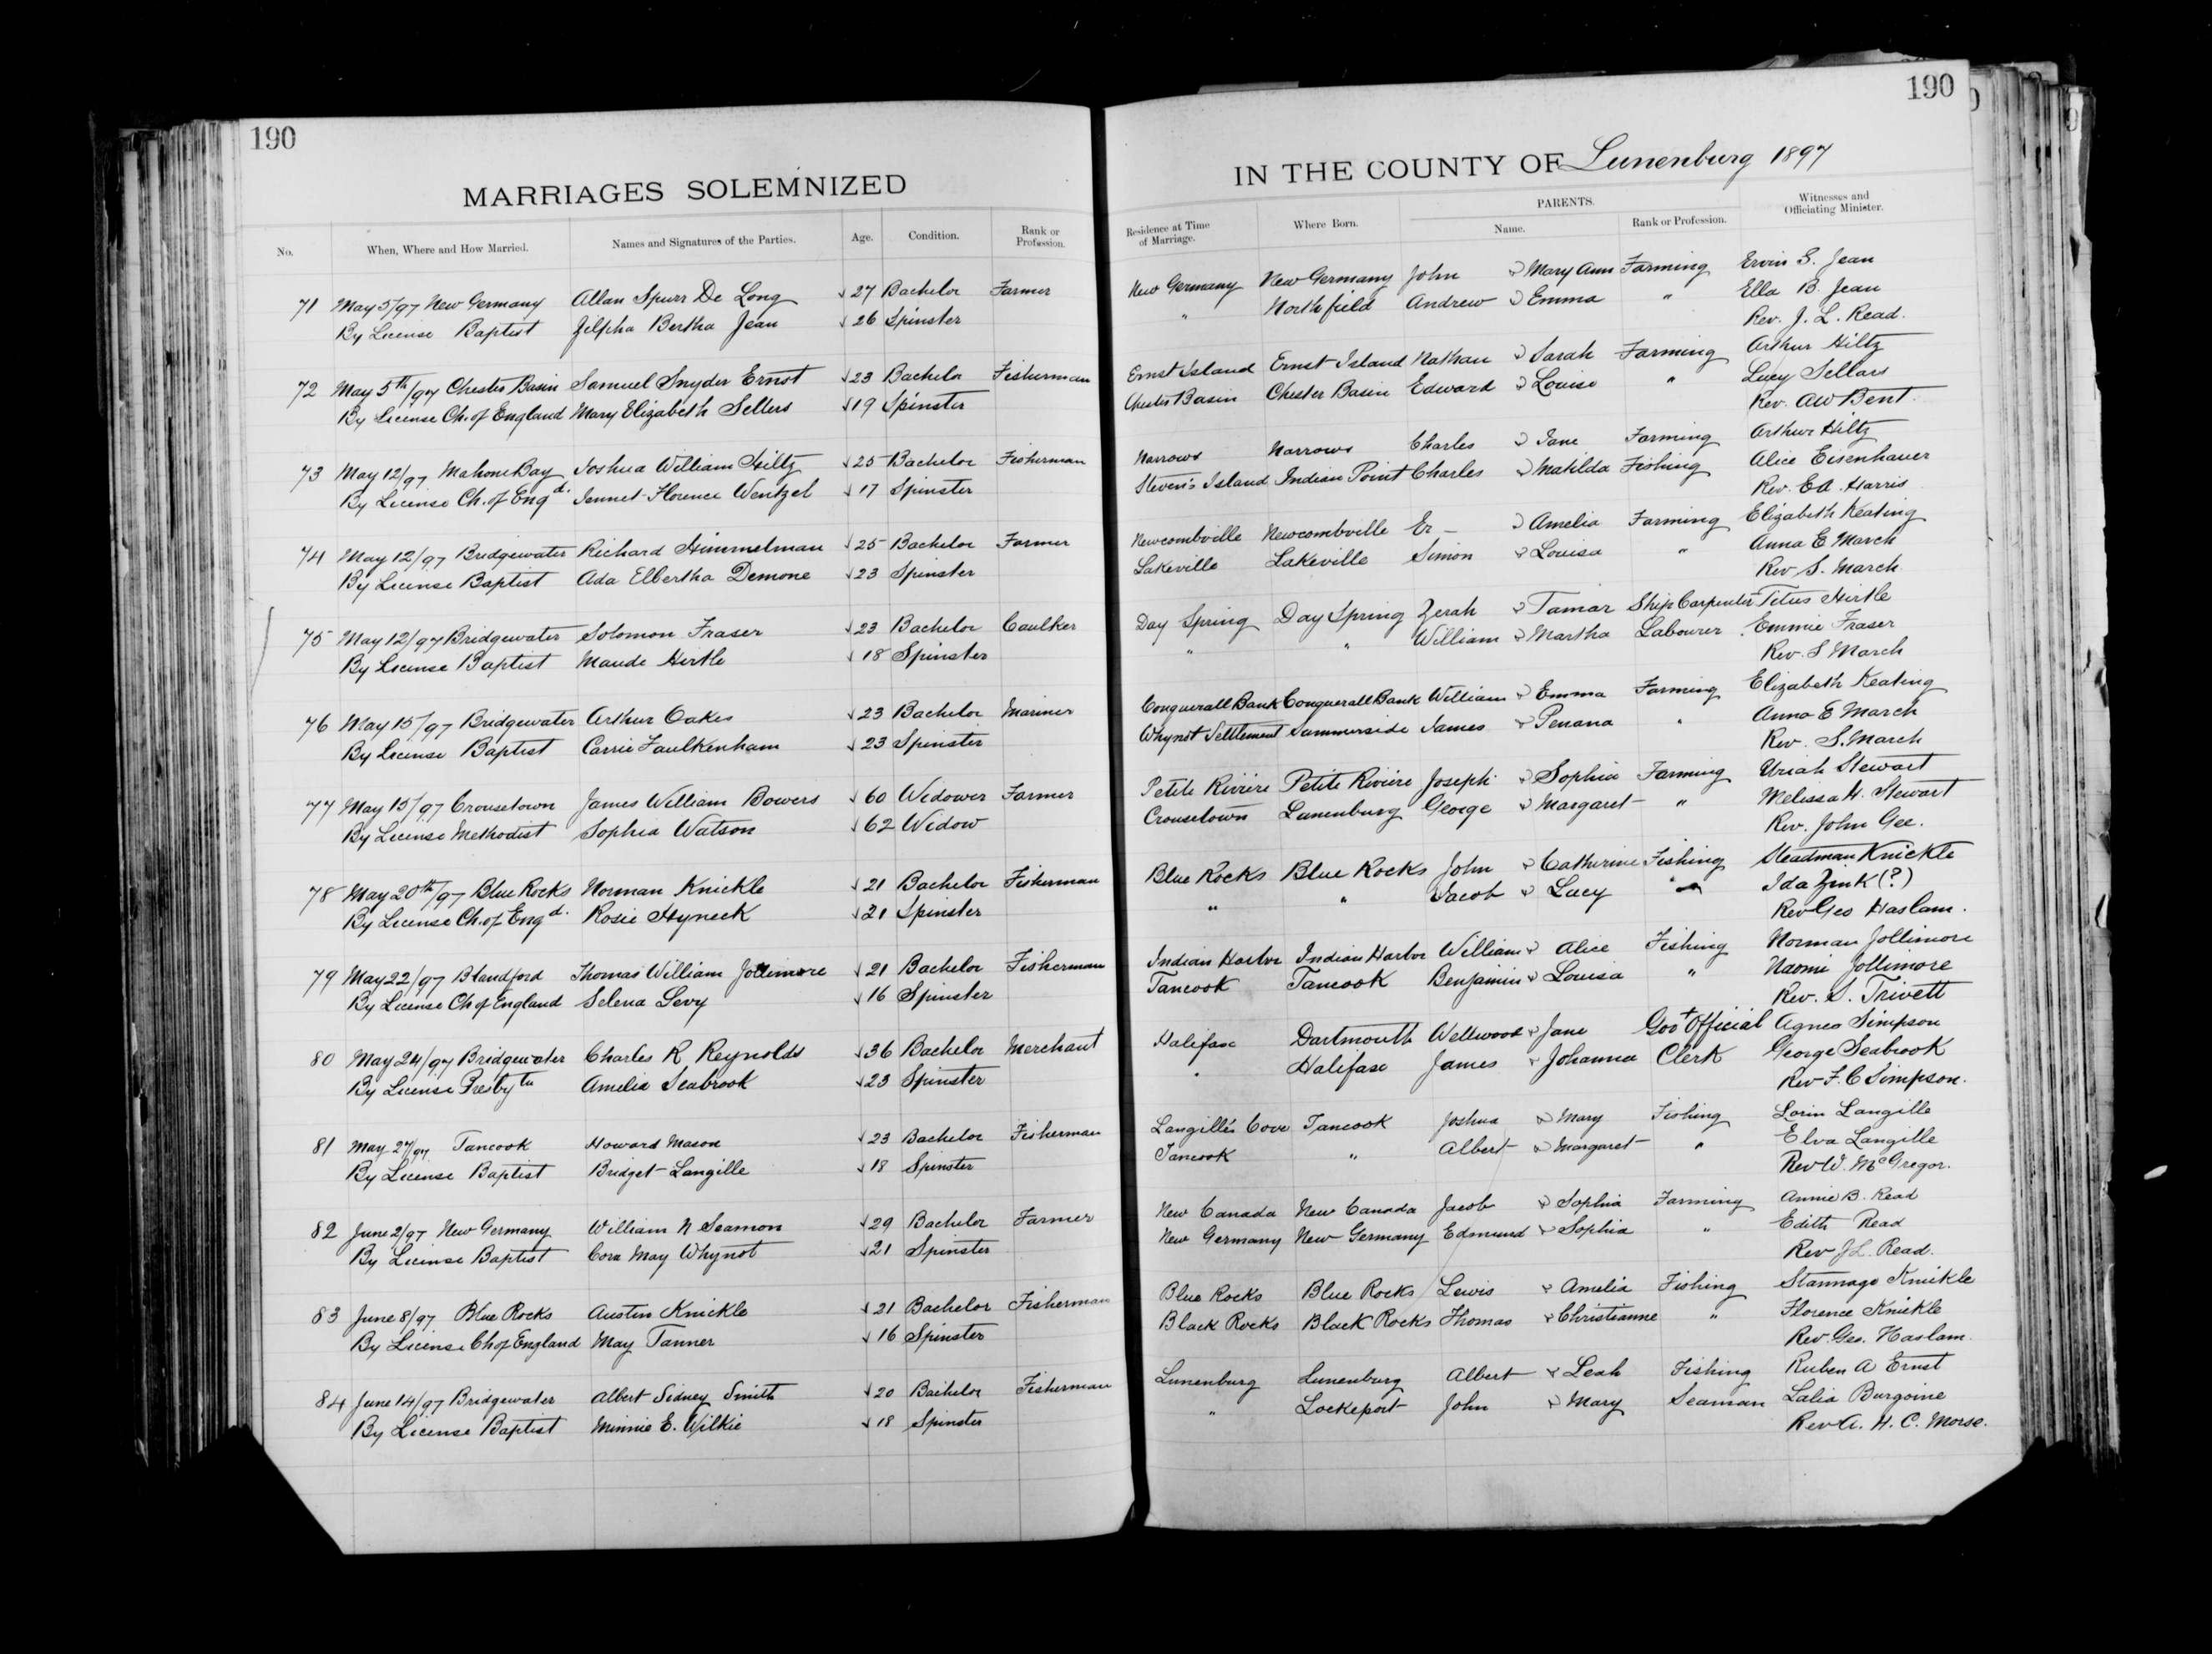 190
MARRIAGES SOLEMNIZED
No. When, Where and How Married. Names and Signatures of the Parties. Age. Condition. Rank or Profession.
71 May 5/97 New Germany Allan Spurr De Long 27 Bachelor Farmer
By License Baptist Zilpha Bertha Jean 26 Spinster
72 May 5th/97 Chester Basin Samuel Snyder Ernst 23 Bachelor Fisherman
By License Ch. of England Mary Elizabeth Sellers 19 Spinster
73 May 12/97 Mahone Bay Joshua William Hiltz 25 Bachelor Fisherman
By License Ch. of Engd. Jennet Florence Wentzel 17 Spinster
74 May 12/97 Bridgewater Richard Himmelman 25 Bachelor Farmer
By License Baptist Ada Elbertha Demone 23 Spinster
75 May 12/97 Bridgewater Solomon Fraser 23 Bachelor Caulker
By License Baptist Maude Hirtle 18 Spinster
76 May 15/97 Bridgewater Arthur Oakes 23 Bachelor Mariner
By License Baptist Carrie Faulkenham 23 Spinster
77 May 15/97 Crousetown James William Bowers 60 Widower Farmer
By License Methodist Sophia Watson 62 Widow
78 May 20th/97 Blue Rocks Norman Knickle 21 Bachelor Fisherman
By License Ch. of Engd. Rosie Hyneck 21 Spinster
79 May 22/97 Blandford Thomas William Jollimore 21 Bachelor Fisherman
By License Ch of England Selena Levy 16 Spinster
80 May 24/97 Bridgewater Charles R Reynolds 36 Bachelor Merchant
By License Presbytn Amelia Seabrook 23 Spinster
81 May 27/97 Tancook Howard Mason 23 Bachelor Fisherman
By License Baptist Bridget Langille 18 Spinster
82 June 2/97 New Germany William N Seamon 29 Bachelor Farmer
By License Baptist Cora May Whynot 21 Spinster
83 June 8/97 Blue Rocks Austin Knickle 21 Bachelor Fisherman
By License Ch of England May Tanner 16 Spinster
84 June 14/97 Bridgewater Albert Sidney Smith 20 Bachelor Fisherman
By License Baptist Minnie E. Wilkie 18 Spinster
190
IN THE COUNTY OF Lunenburg 1897
Residence at Time of Marriage. Where Born. PARENTS. Name. Rank or Profession. Witnesses and Officiating Minister.
New Germany New Germany John & Mary Ann Farming Ervin S. Jean
" Northfield Andrew & Emma " Ella B. Jean
Rev. J. L. Read.
Ernst Island Ernst Island Nathan & Sarah Farming Arthur Hiltz
Chester Basin Chester Basin Edward & Louise " Lucy Sellars
Rev. AW Bent.
Narrows Narrows Charles & Jane Farming Arthur Hiltz
Steven's Island Indian Point Charles & Matilda Fishing Alice Eisenhauer
Rev. EA. Harris
Newcombville Newcombville Er - & Amelia Farming Elizabeth Keating
Lakeville Lakeville Simon & Louisa " Anna E March
Rev S. March
Day Spring Day Spring Zerah & Tamar Ship Carpenter Titus Hirtle
" " William & Martha Labourer. Emmie Fraser
Rev. S March
Conquerall Bank Conquerall Bank William & Emma Farming Elizabeth Keating
Whynot Settlement Summerside James & Penana " Anna E March
Rev. S. March
Petite Riviere Petite Riviere Joseph & Sophia Farming Uriah Stewart
Crousetown Lunenburg George & Margaret " Melissa H. Stewart
Rev. John Gee.
Blue Rocks Blue Rocks John & Catherine Fishing Steadman Knickle
" " Jacob & Lucy " Ida Zink (?)
Rev Geo Haslam.
Indian Harbor Indian Harbor William & Alice Fishing Norman Jollimore
Tancook Tancook Benjamin & Louisa " Naomi Jollimore
Rev. S. Trivett
Halifax Dartmouth Wellwood & Jane Govt Official Agnes Simpson
" Halifax James & Johanna Clerk George Seabrook
Rev F. C Simpson.
Langille's Cove Tancook Joshua & Mary Fishing Lorin Langille
Tancook " Albert & Margaret " Elva Langille
Rev W. McGregor.
New Canada New Canada Jacob & Sophia Farming Annie B. Read
New Germany New Germany Edmund & Sophia " Edith Read
Rev J L. Read.
Blue Rocks Blue Rocks Lewis & Amelia Fishing Stannage Knickle
Black Rocks Black Rocks Thomas & Christianne " Florence Knickle
Rev Geo. Haslam.
Lunenburg Lunenburg Albert & Leah Fishing Ruben A Ernst
" Lockeport John & Mary Seaman Lalia Burgoine
Rev A. H. C. Morse.